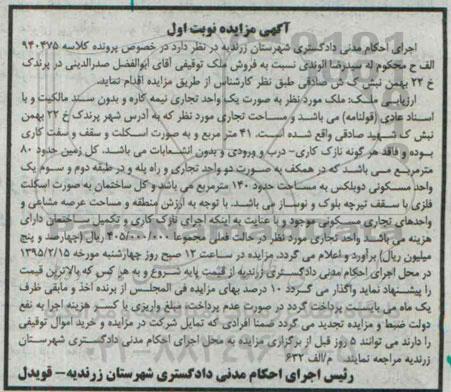 آگهی مزایده نوبت اول
اجرای احکام مدنی دادگستری شهرستان زرندیه در نظر دارد در خصوص پرونده کلاسه ۹۴۰۴۷۵
الف ح محکوم له سیدرضا الوندی نسبت به فروش ملک توقیفی آقای ابوالفضل صدرالدینی در پرندک
خ ۲۲ بهمن نبش ک ش صادقی طبق نظر کارشناس از طریق مزایده اقدام نماید.
ارزیابی ملک: ملک مورد نظر به صورت یک واحد تجاری نیمه کاره و بدون سند مالکیت و با
اسناد عادی (قولنامه) می باشد و مساحت تجاری مورد نظر که به آدرس شهر پرندک خ ۲۲ بهمن
نبش ک شهید صادقی واقع شده است. ۴۱ متر مربع و به صورت اسکلت و سقف و سفت کاری
بوده و فاقد هر گونه نازک کاری- درب و ورودی و بدون انشعابات می باشد. کل زمین حدود ۸۰
مترمربع می باشد که در همکف به صورت دو واحد تجاری و راه پله و در طبقه دوم و سوم یک
واحد مسکونی دوبلکس به مساحت حدود ۱۴۰ مترمربع می باشد و کل ساختمان به صورت اسکلت
فلزی با سقف تیرچه بلوک و نوساز می باشد. با توجه به ارزش منطقه و مساحت عرصه مشاعی و
واحدهای تجاری مسکونی موجود و با عنایت به اینکه اجرای نازک کاری و تکمیل ساختمان دارای
هزینه می باشد واحد تجاری مورد نظر در حالت فعلی مجموعا ۴۰۵/۰۰۰/۰۰۰ ریال (چهارصد و پنج
میلیون ریال) برآورد و اعلام می گردد. مزایده در ساعت ۱۲ صبح روز چهارشنبه مورخه ۱۳۹۵/۲/۱۵
در محل اجرای احکام مدنی دادگستری زرندیه از قیمت پایه شروع و به هر کس که بالاترین قیمت
را پیشنهاد نماید واگذار می گردد ۱۰ درصد بهای مزایده فی المجلس از برنده اخذ و مابقی ظرف
یک ماه می بایست پرداخت گردد در صورت عدم پرداخت، مبلغ واریزی با کسر هزینه اجرا به نفع
دولت ضبط و مزایده تجدید می گردد ضمنا افرادی که تمایل شرکت در مزایده و خرید اموال توقیفی
را دارند می توانند ۵ روز قبل از برگزاری مزایده به محل اجرای احکام مدنی دادگستری شهرستان
زرندیه مراجعه نمایند. م/الف ۶۳۲
رئیس اجرای احکام مدنی دادگستری شهرستان زرندیه- قویدل